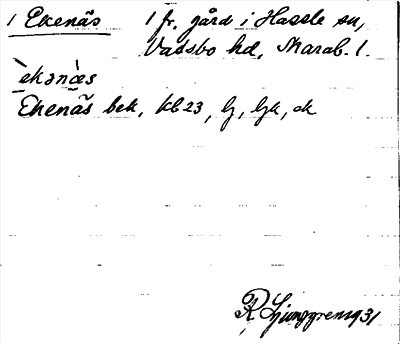 1 Ekenäs 1 fr. gård i Hassle sn,
Vadsbo hd, Skarab. l.
`ekənæ`s
Ekenäs bek, kb 23, lj, ljk, ek
R Ljunggren 1931